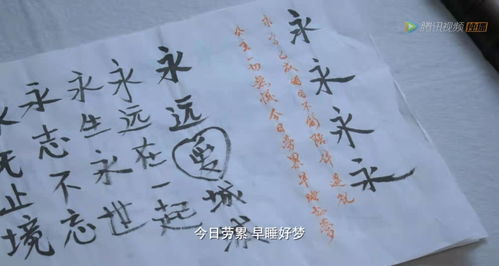 腾讯视频 独播
永永永永
今日劳累早睡好梦
永远爱
永远在一起
永生永世
永志不忘
永无止境
今日劳累 早睡好梦